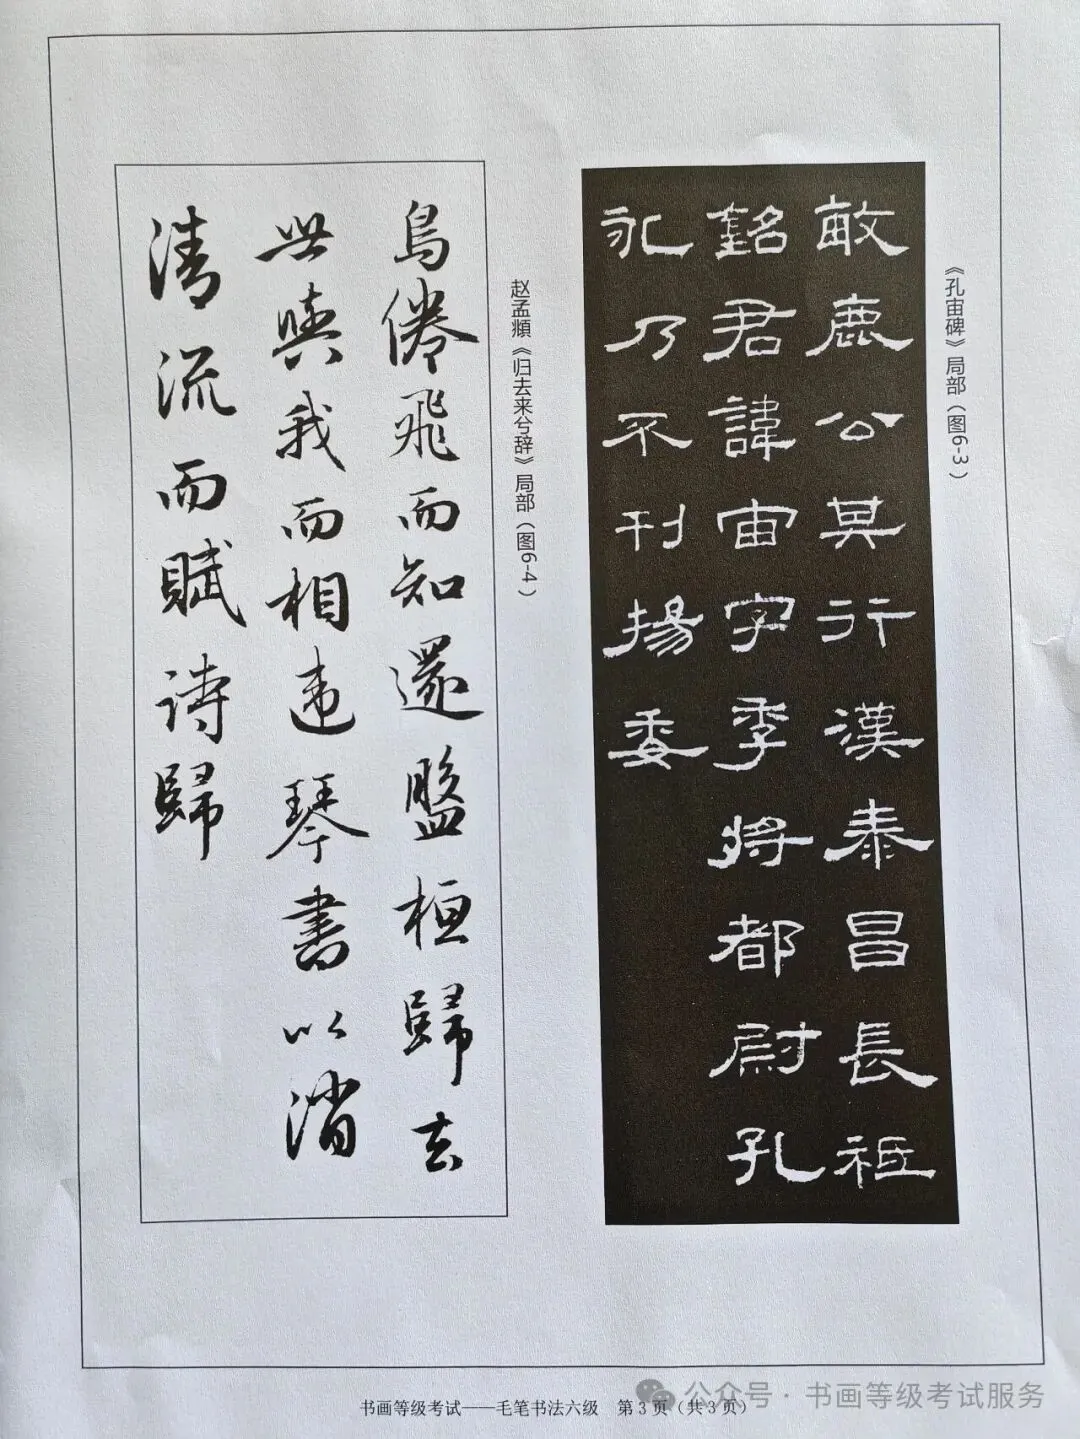 《孔宙碑》局部(图6-3)
敏鹿公莫行漢泰昌長祗
銘君諱宙字季将都尉孔
永乃不刊揚委
赵孟頫《归去来兮辞》局部(图6-4)
鳥倦飛而知還盤桓歸去
世與我而相違琴書以消
清流而賦詩歸
公众号·书画等级考试服务
书画等级考试——毛笔书法六级 第3页(共3页)